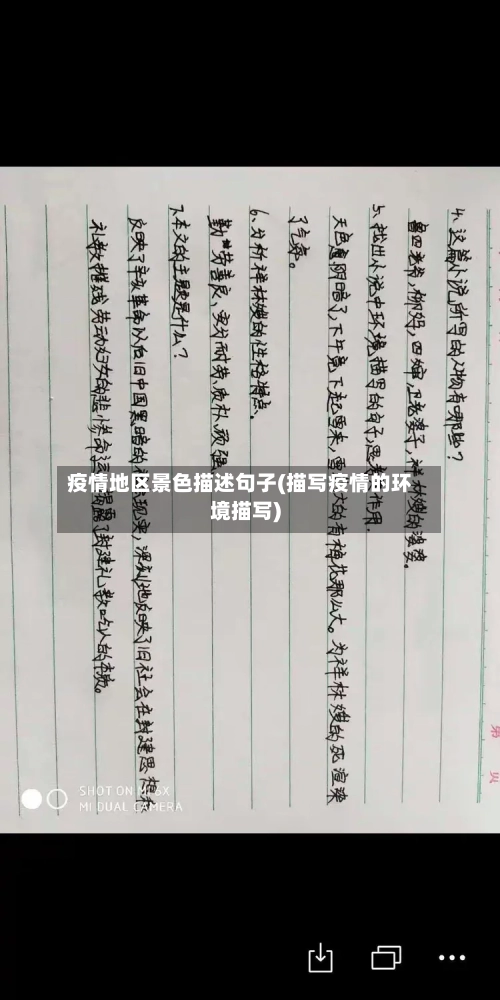 4、这篇小说所写的人物有哪些?
鲁四老爷,柳妈,四婶,卫老婆子,祥林嫂的婆婆。
5、找出小说中环境描写的句子,思考作用.
天色愈阴暗了,下午竟下起雪来,雪花大的有梅花那么大。为祥林嫂的死渲染
了气氛。
6、分析祥林嫂的性格特点、
勤劳善良、安分耐劳、质朴、顽强
7、本文的主题是什么?
反映了辛亥革命以后旧中国黑暗的社会现实,深刻地反映了旧社会在封建思想和
礼教摧残劳动妇女的悲惨命运,揭露了封建礼教吃人的本质。
疫情地区景色描述句子(描写疫情的环
境描写)
第 页
SHOT ON MI 6X
MI DUAL CAMERA